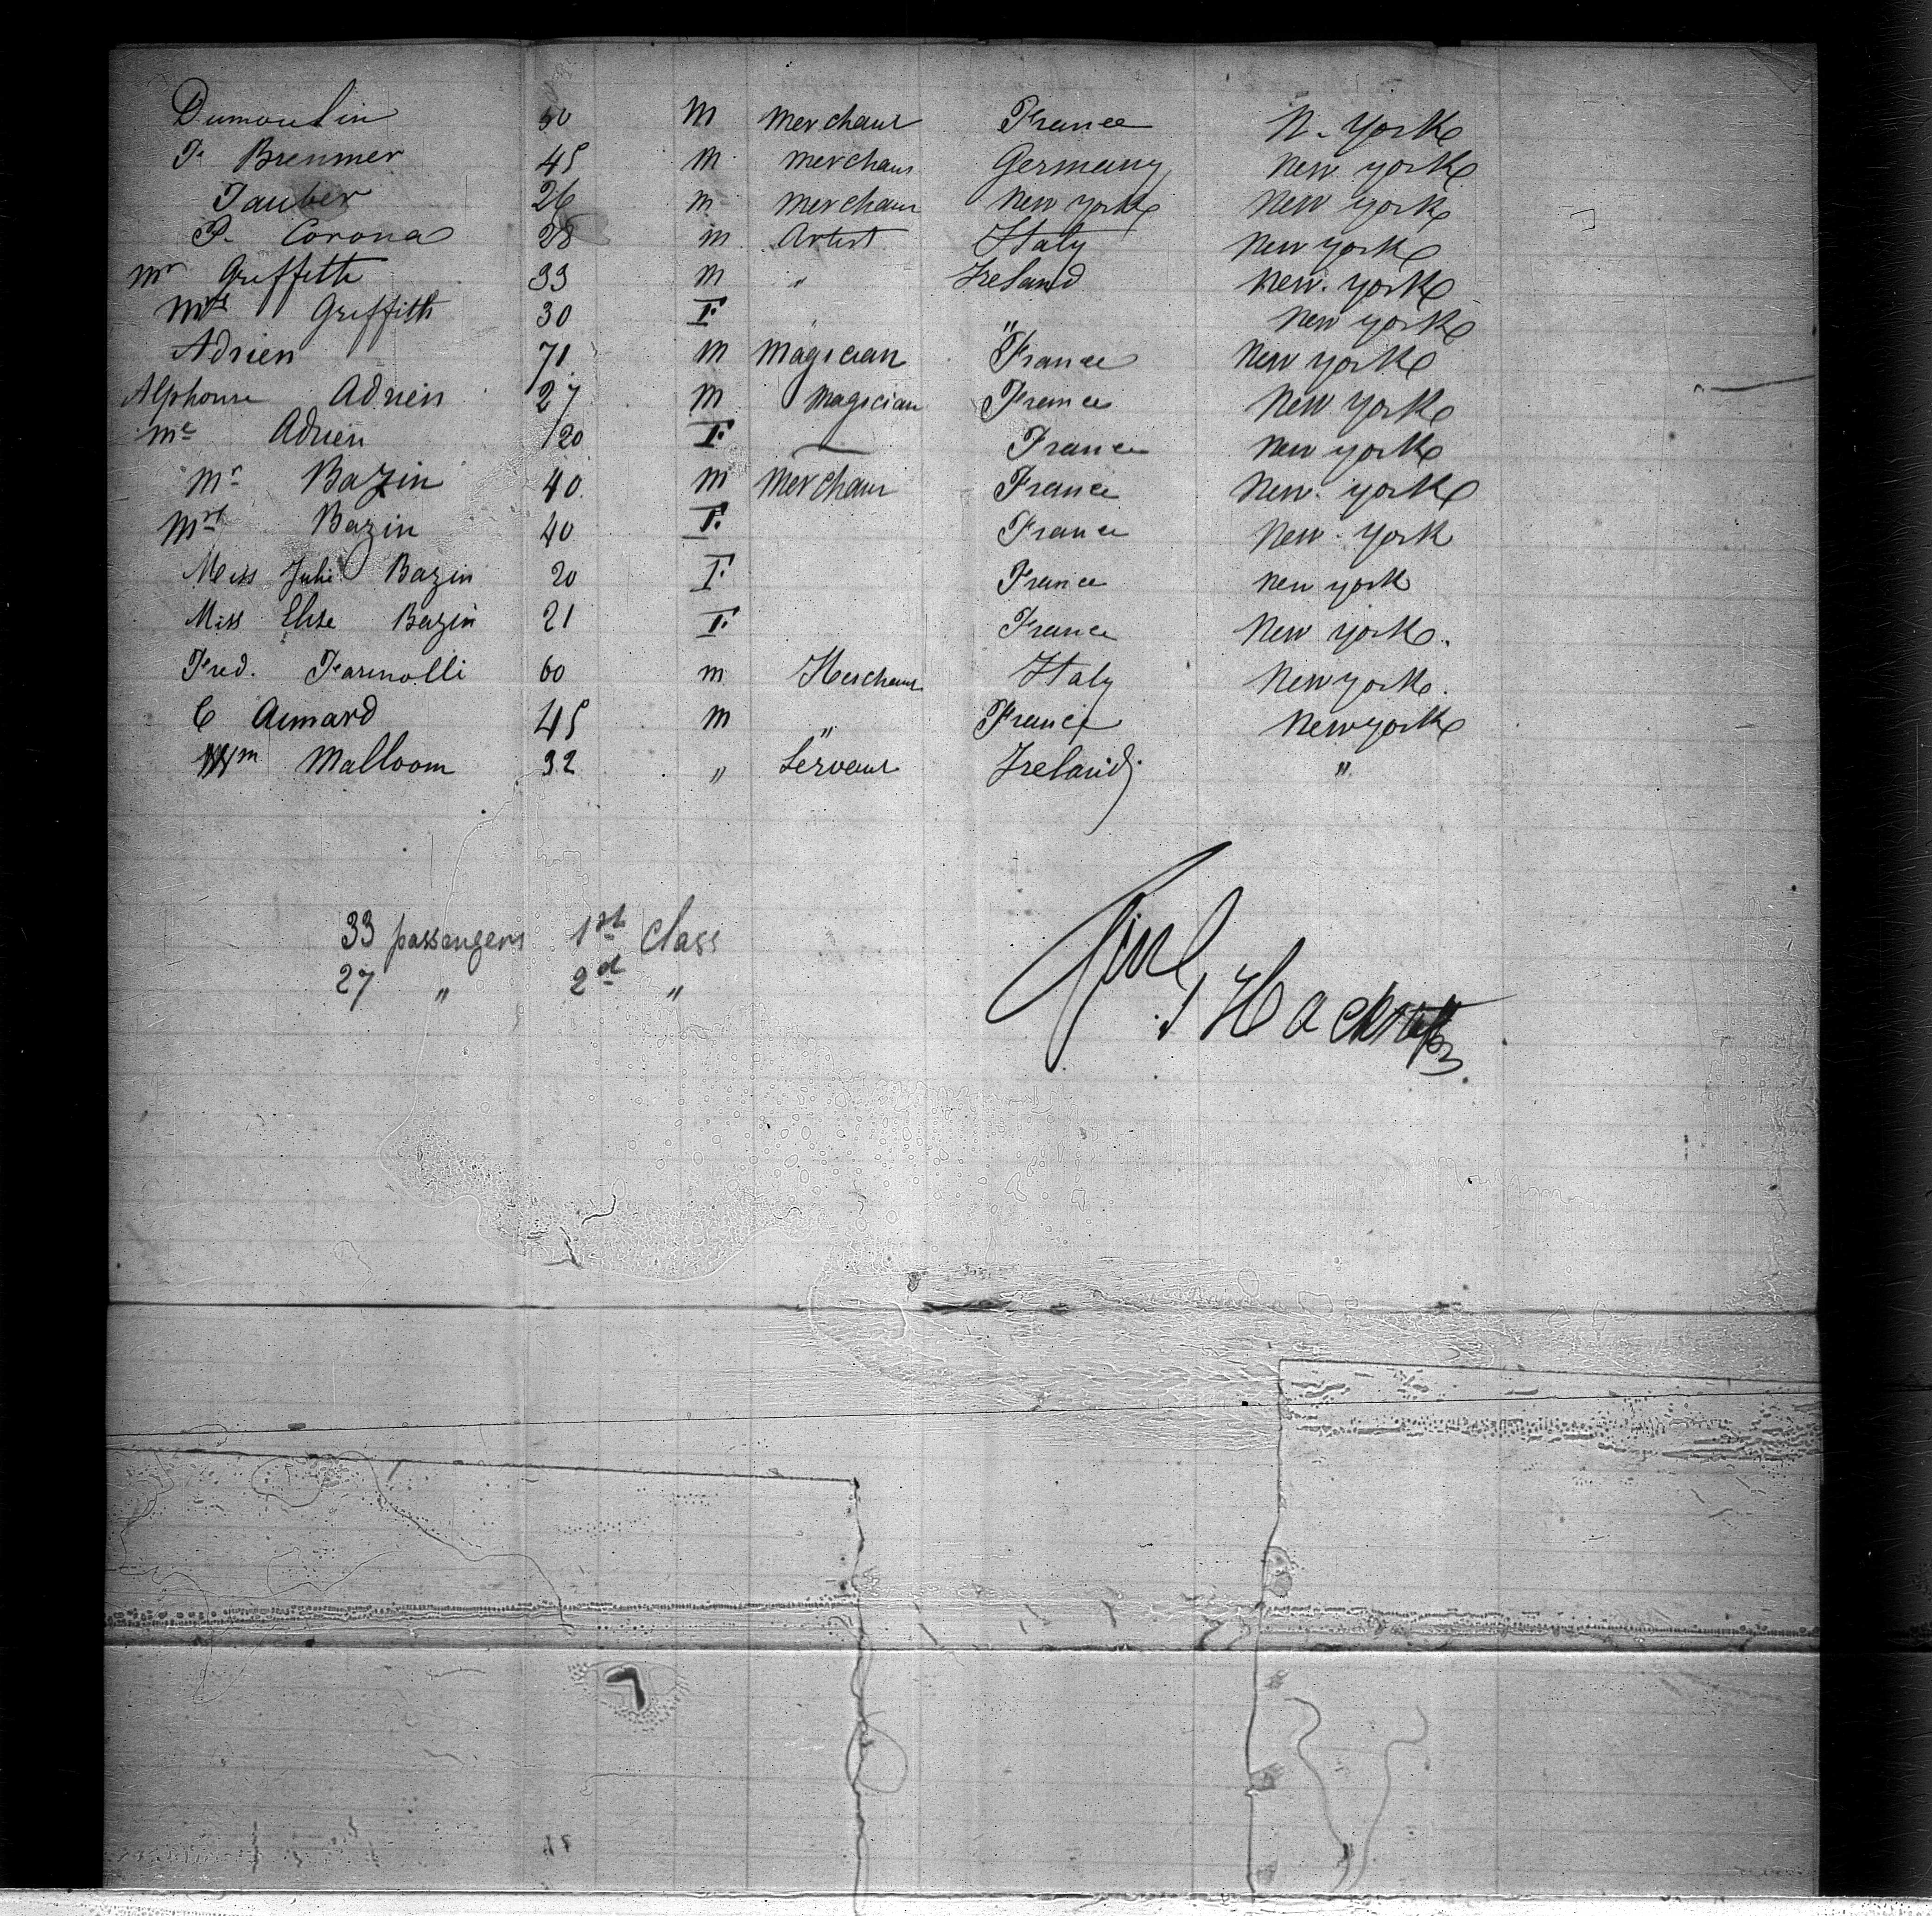 Dumoulin 50 M Merchant France N. York
F. Bremmer 45 M Merchant Germany New York
Tauber 26 M Merchant New York New York
P. Corona 28 M Artist Italy New York
Mr Griffith 33 M " Ireland New York
Mrs Griffith 30 F " " New York
Adrien 71 M Magician France New York
Alphonse Adrien 27 M Magician France New York
Me Adrien 20 F — France New York
Mr Bazin 40 M Merchant France New York
Mrs Bazin 40 F France New York
Miss Julie Bazin 20 F France New York
Miss Elise Bazin 21 F France New York.
Fred. Farinolli 60 M Merchant Italy New York.
C Aimard 45 M " France New York
Wm Malloom 32 " Servant Ireland "
33 passengers 1st Class
27 " 2d "